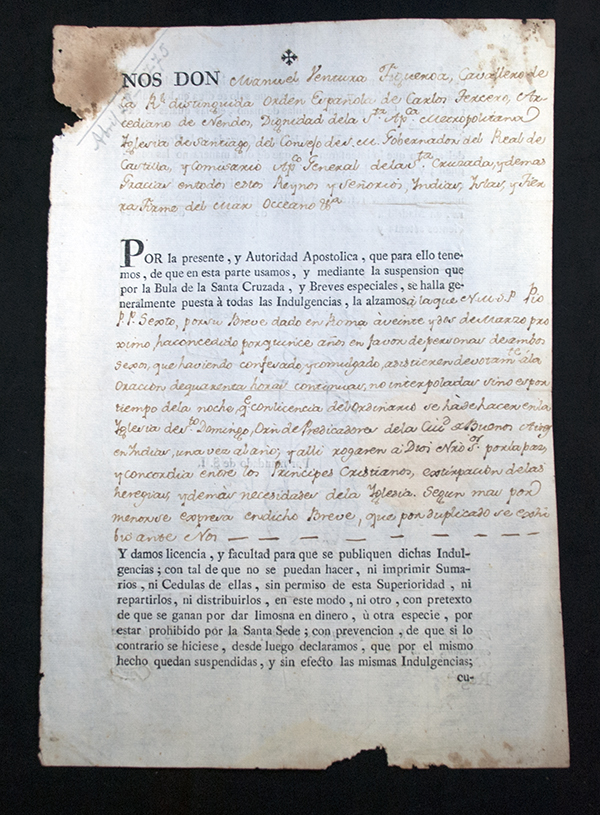 NOS DON Manuel Ventura Figueroa, Cavallero de
la Rl. distinguida Orden Española de Carlos Tercero, Ar-
cediano de Nendos, Dignidad dela Sta. Apca. Metropolitana
Iglesia de Santiago, del Consejo de S. M. Gobernador del Real de
Castilla, y Comisario Apco. General delas Sta. Cruzada, y demas
Gracias en todos estos Reynos y Señorios, Indias, Islas, y Tier-
ra Firme del Mar Occeano &a.
POR la presente, y Autoridad Apostolica, que para ello tene-
mos, de que en esta parte usamos, y mediante la suspension que
por la Bula de la Santa Cruzada, y Breves especiales, se halla ge-
neralmente puesta à todas las Indulgencias, la alzamos à la que N. M. S. P. Pio
P.P. Sexto, por su Breve dado en Roma à veinte y dos de Marzo pro-
ximo ha concedido por quince años en favor de personas de ambos
Sexos, que haviendo confesado, y comulgado, asistieren devotamte. à la
Oracion de quarenta horas continuas, no interpoladas sino es por
tiempo dela noche, qe. con licencia del Ordinario se hà de hacer en la
Iglesia de Sto. Domingo, Orn. de Predicadores de la Ciud. de Buenos Ayres
en Indias, una vez al año, y alli rogaren à Dios Nro. Sr. por la paz,
y concordia entre los Principes Cristianos, extirpacion de las
heregias, y demàs necesidades dela Iglesia. Segun mas por
menor se expresa en dicho Breve, que por duplicado se exhi-
bio ante Nos
Y damos licencia, y facultad para que se publiquen dichas Indul-
gencias; con tal de que no se puedan hacer, ni imprimir Suma-
rios, ni Cedulas de ellas, sin permiso de esta Superioridad, ni
repartirlos, ni distribuirlos, en este modo, ni otro, con pretexto
de que se ganan por dar limosna en dinero, ù otra especie, por
estar prohibido por la Santa Sede; con prevencion, de que si lo
contrario se hiciese, desde luego declaramos, que por el mismo
hecho quedan suspendidas, y sin efecto las mismas Indulgencias;
cu-